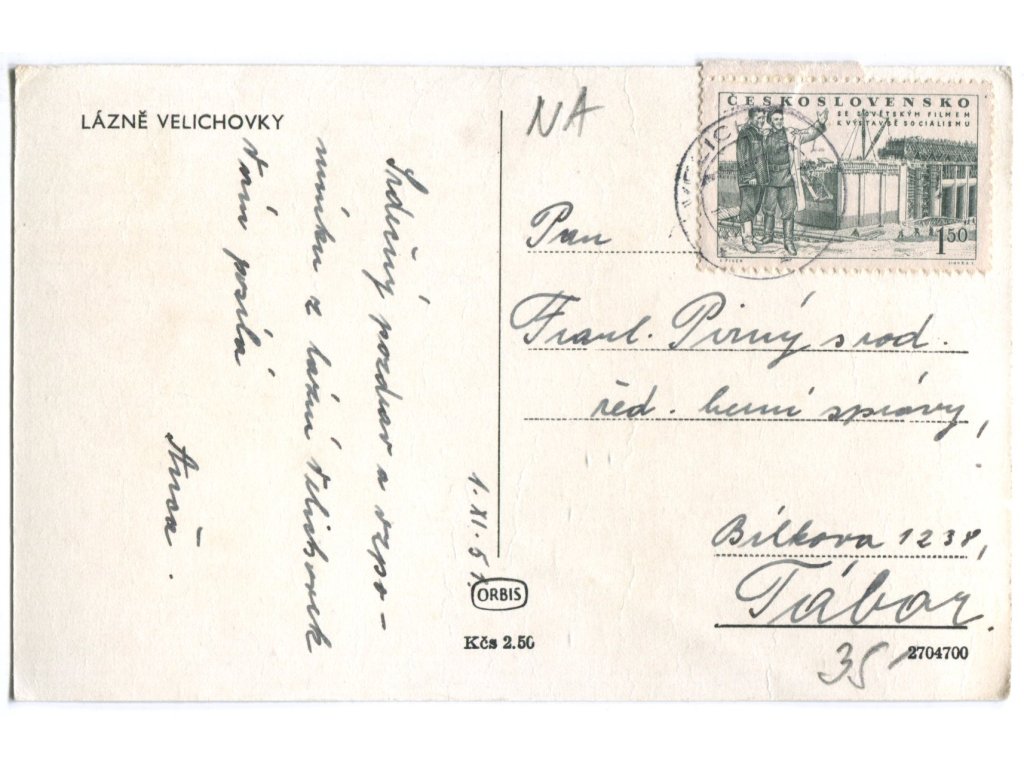 LÁZNĚ VELICHOVKY
Srdečný pozdrav a vzpo-
mínku z lázní Velichovek
Vám posílá
Anča.
1. XI. 51.
ORBIS
Kčs 2.50
NA
ČESKOSLOVENSKO
SE SOVĚTSKÝM FILMEM
K VÝSTAVBĚ SOCIALISMU
1 50
Pan
Frant. Pirný s rod.
řed. berní správy,
Bílkova 1238,
Tábor.
35
2704700